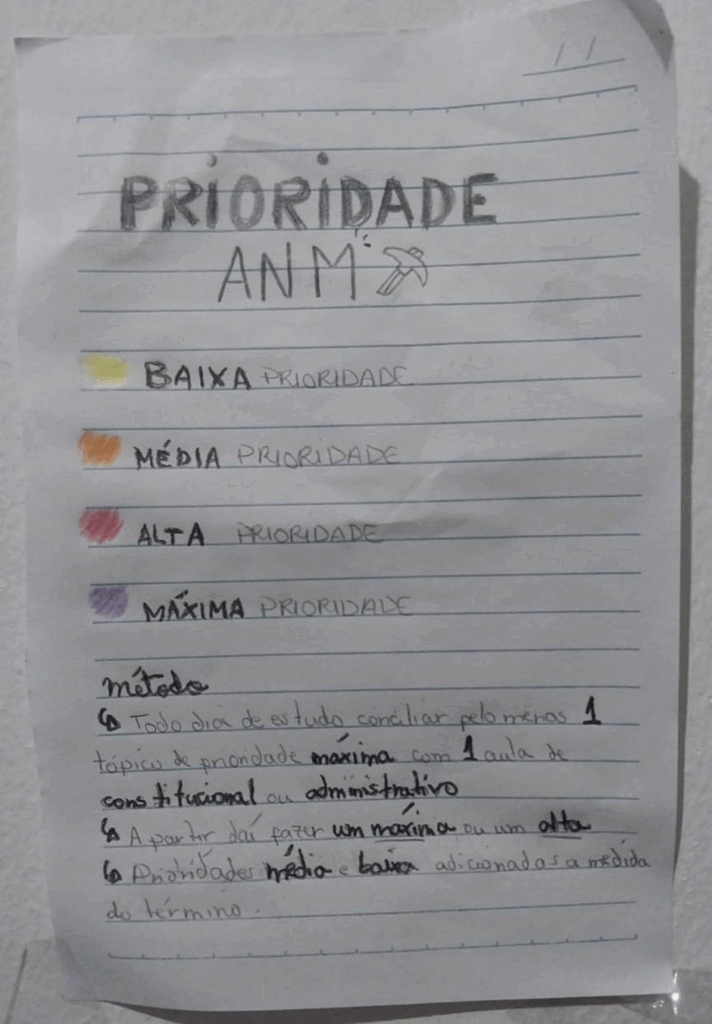 / /
PRIORIDADE
ANM
BAIXA PRIORIDADE
MÉDIA PRIORIDADE
ALTA PRIORIDADE
MÁXIMA PRIORIDADE
método
↳ Todo dia de estudo conciliar pelo menos 1
tópico de prioridade máxima com 1 aula de
constitucional ou administrativo
↳ A partir daí fazer um máxima ou um alta
↳ Prioridades média e baixa adicionadas a medida
do término.